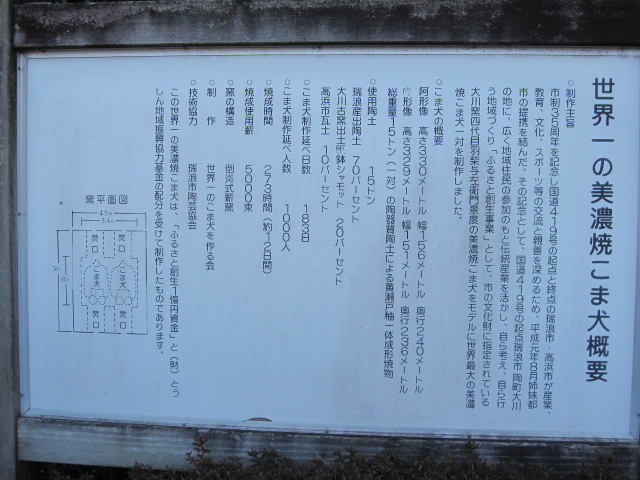 世界一の美濃焼こま犬概要
○制作主旨
市制35周年を記念し国道419号の起点と終点の瑞浪市・高浜市が産業、
教育、文化、スポーツ等の交流と親善を深めるため、平成元年8月姉妹都
市の提携を結んだ。その記念として、国道419号の起点瑞浪市陶町大川
の地に、広く地域住民の参加のもと伝統産業を活かし、自ら考え、自ら行
う地域づくり「ふるさと創生事業」として、市の文化財に指定されている
大川窯四代目羽柴与左衛門景度の美濃焼こま犬をモデルに世界最大の美濃
焼こま犬一対を制作しました。
○こま犬の概要
阿形像 高さ330メートル 幅156メートル 奥行240メートル
吽形像 高さ329メートル 幅151メートル 奥行236メートル
総重量15トン(一対)の陶器質陶土による黄瀬戸釉一体成形焼物
○使用陶土 15トン
瑞浪産出陶土 70パーセント
大川古窯出土匣鉢シャモット 20パーセント
高浜市瓦土 10パーセント
○こま犬制作延べ日数 183日
○こま犬制作延べ人数 1000人
○焼成時間 273時間(約12日間)
○焼成使用薪 5000束
○窯の構造 倒炎式薪窯
○制作 世界一のこま犬を作る会
○技術協力 瑞浪市陶芸協会
この世界一の美濃焼こま犬は、「ふるさと創生1億円資金」と(財)とう
しん地域振興協力基金の配分を受けて制作したものであります。
窯平面図
4.5m
3.4m
焚口 焚口
こま犬 こま犬
焚口 焚口